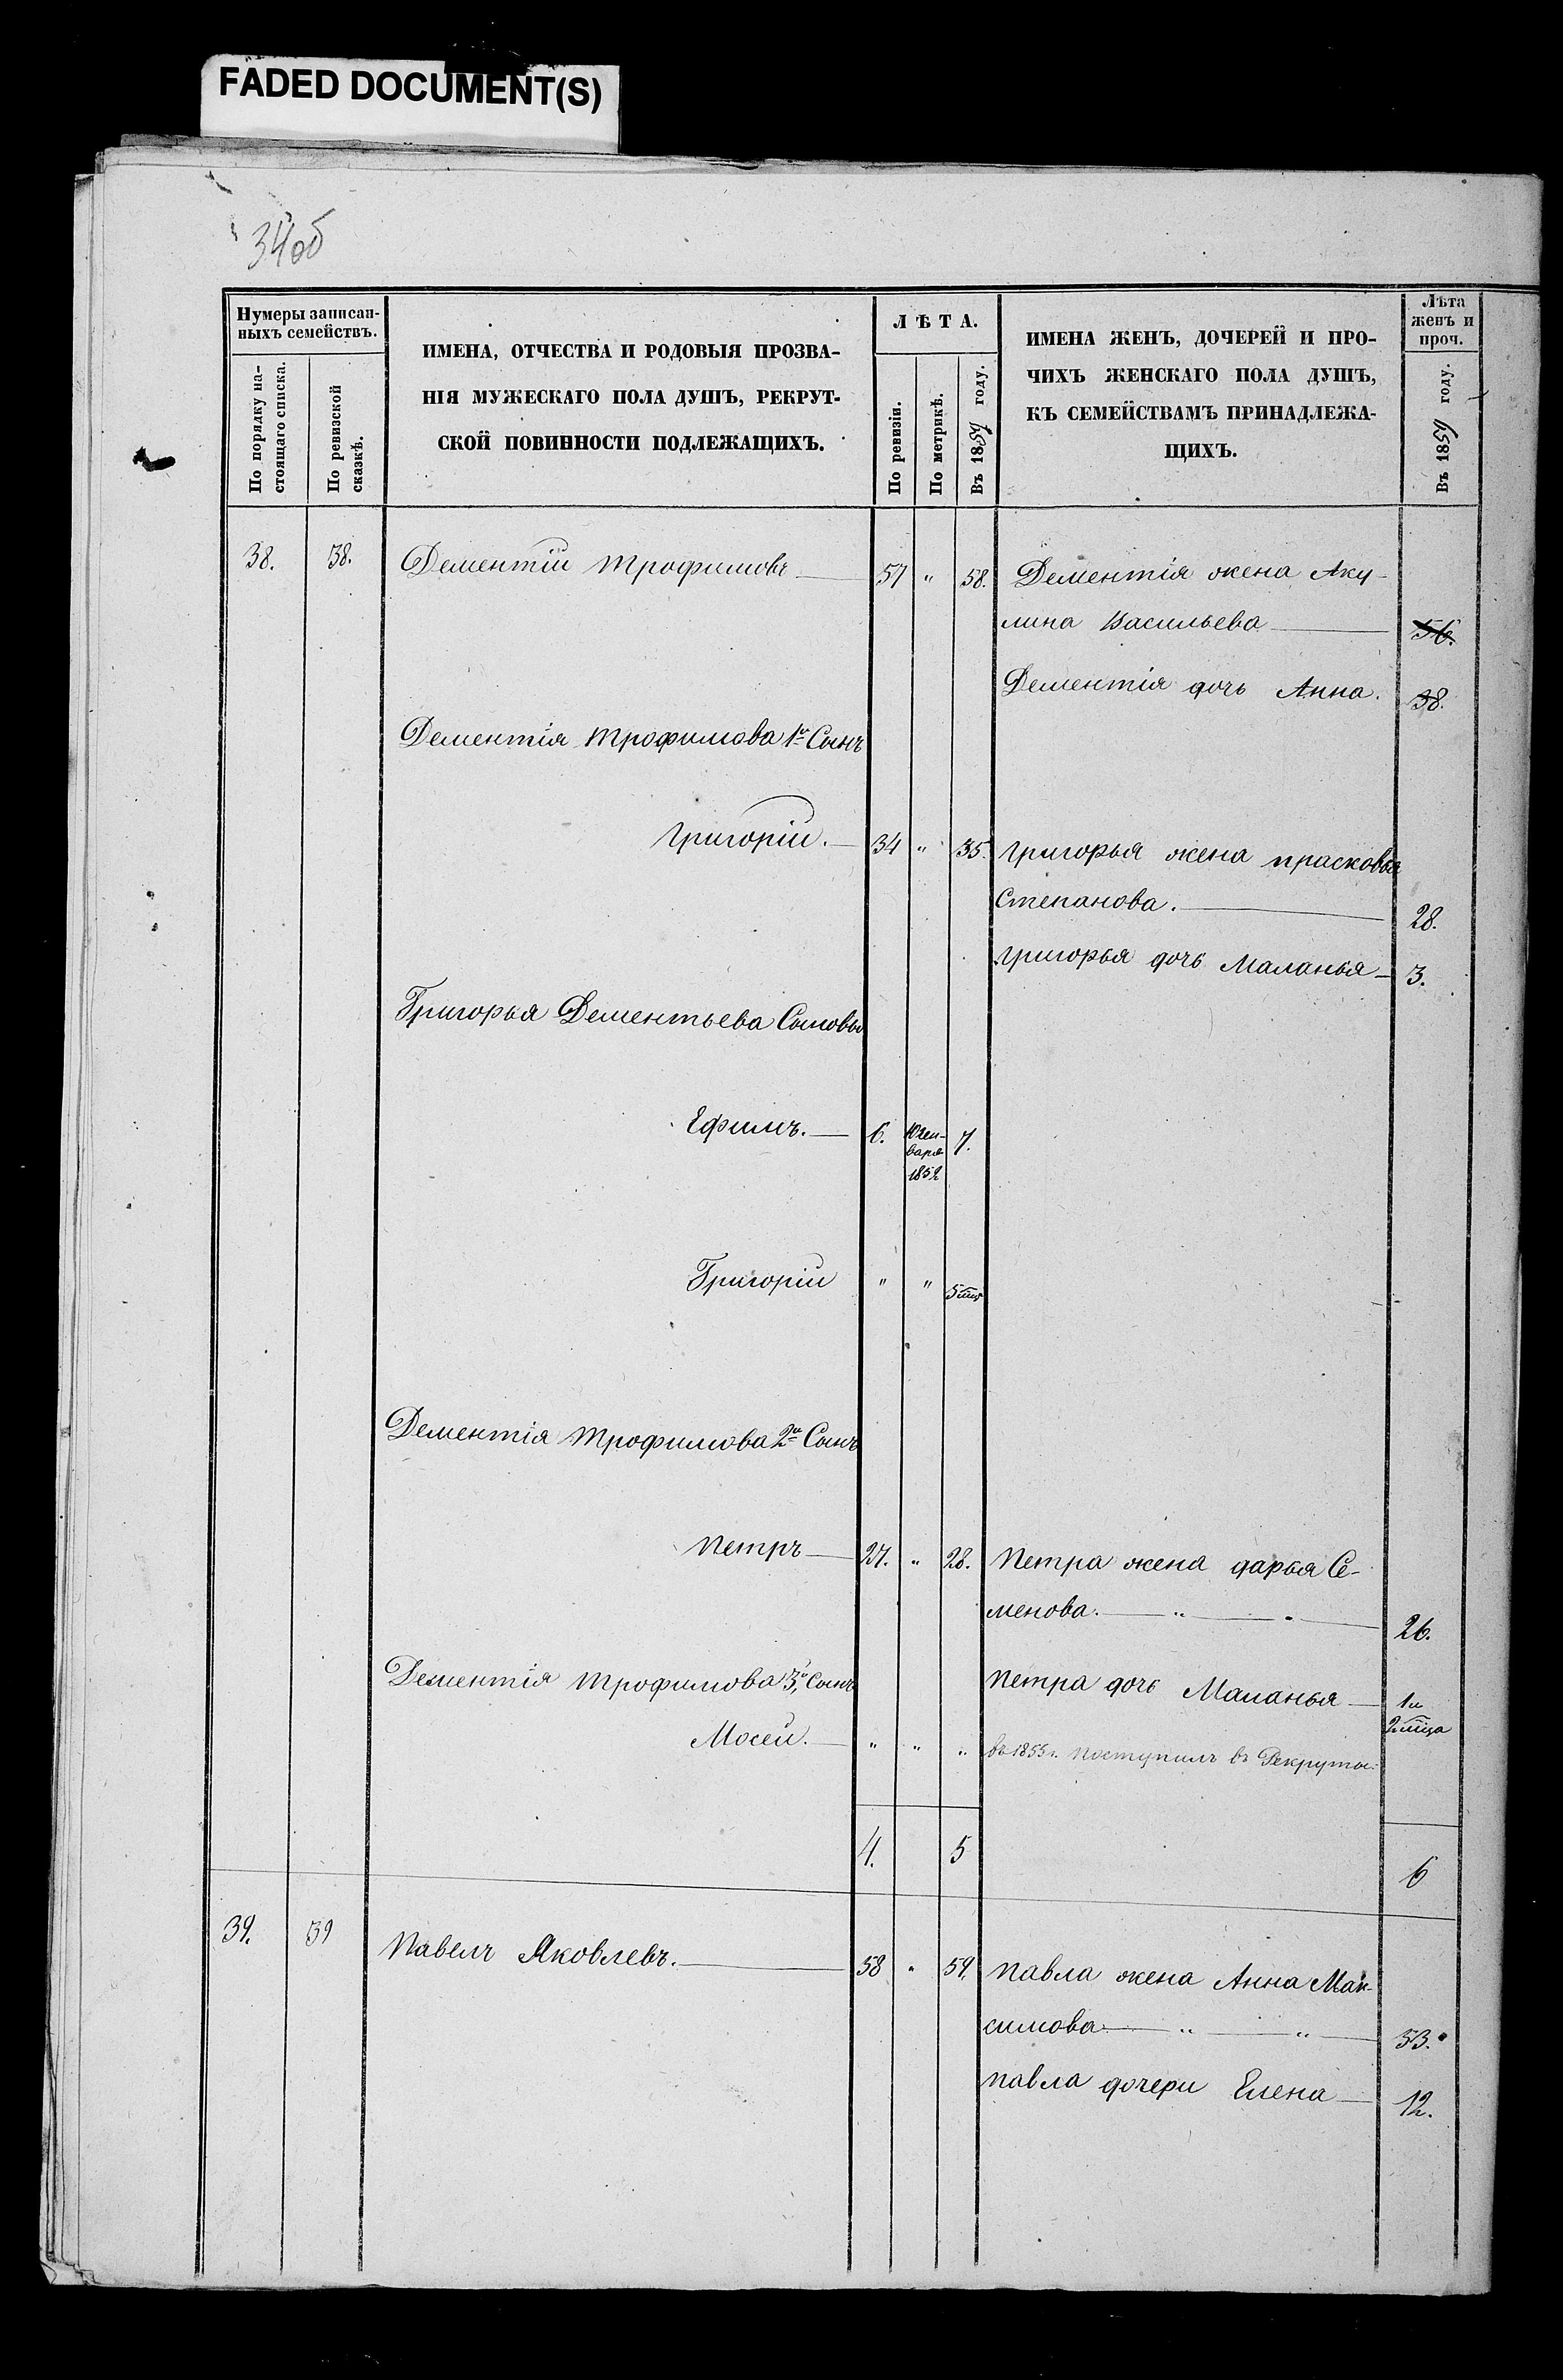 FADED DOCUMENT(S)
34об
Нумеры записан-
ныхъ семействъ.
По порядку на-
стоящаго списка.
По ревизской
сказкѣ.
ИМЕНА, ОТЧЕСТВА И РОДОВЫЯ ПРОЗВА-
НІЯ МУЖЕСКАГО ПОЛА ДУШЪ, РЕКРУТ-
СКОЙ ПОВИННОСТИ ПОДЛЕЖАЩИХЪ.
ЛѢТА.
По ревизіи.
По метрикѣ.
Въ 1859 году.
ИМЕНА ЖЕНЪ, ДОЧЕРЕЙ И ПРО-
ЧИХЪ ЖЕНСКАГО ПОЛА ДУШЪ,
КЪ СЕМЕЙСТВАМЪ ПРИНАДЛЕЖА-
ЩИХЪ.
Лѣта
женъ и
проч.
Въ 1859 году.
38. 38. Дементій Трофимовъ 57 " 58. Дементія жена Аку-
лина Васильева 56.
Дементія дочь Анна. 38.
Дементія Трофимова 1й Сынъ
Григорій. 34 " 35. Григорья жена прасковья
Степанова. 28.
Григорья дочь Маланья 3.
Григорья Дементьева Сыновья
Ефимъ. 6. 10 Ген-
варя
1852 7.
Григорій " " 5
Дементія Трофимова 2й Сынъ
Петръ 27. " 28. Петра жена дарья Се-
менова. " 26.
Дементія Трофимова 3й Сынъ
Петра дочь Маланья 1 и
2 мѣца
Мосей. " " " въ 1855 г. поступилъ въ Рекруты.
4. 5 6
39. 39 Павелъ Яковлевъ. 58 " 59. Павла жена Анна Мак-
симова " " 53.
Павла дочери Елена 12.